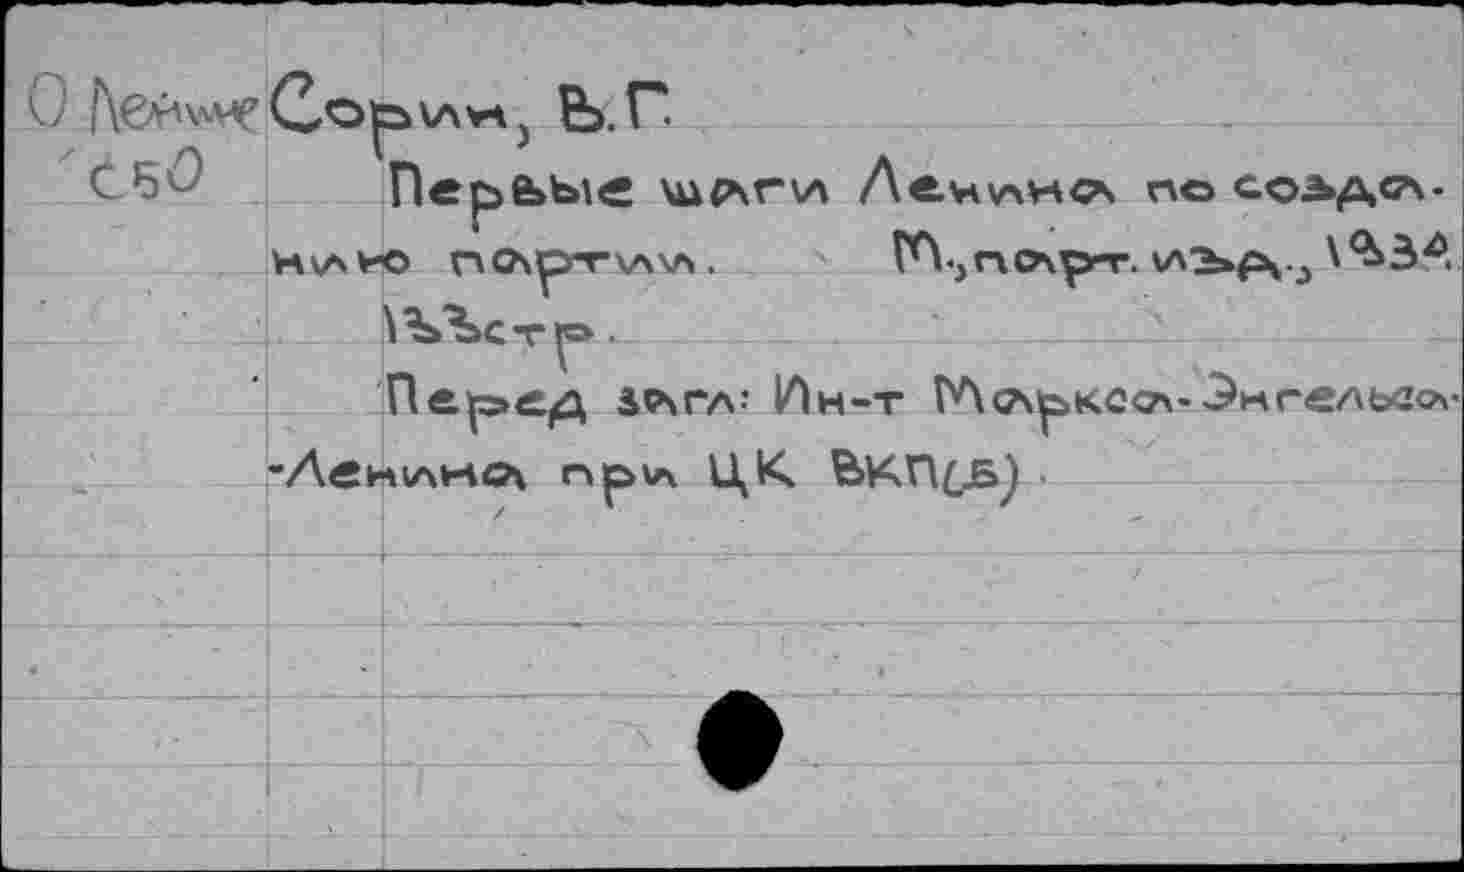 О Ленине Сорин, В.Г.
С50
Первые шаги Ленина по созда-
нию партии. М., парт. изд., 1934.
133 стр.
Перед загл: Ин-т Маркса-Энгельса-
-Ленина при ЦК ВКП(б).